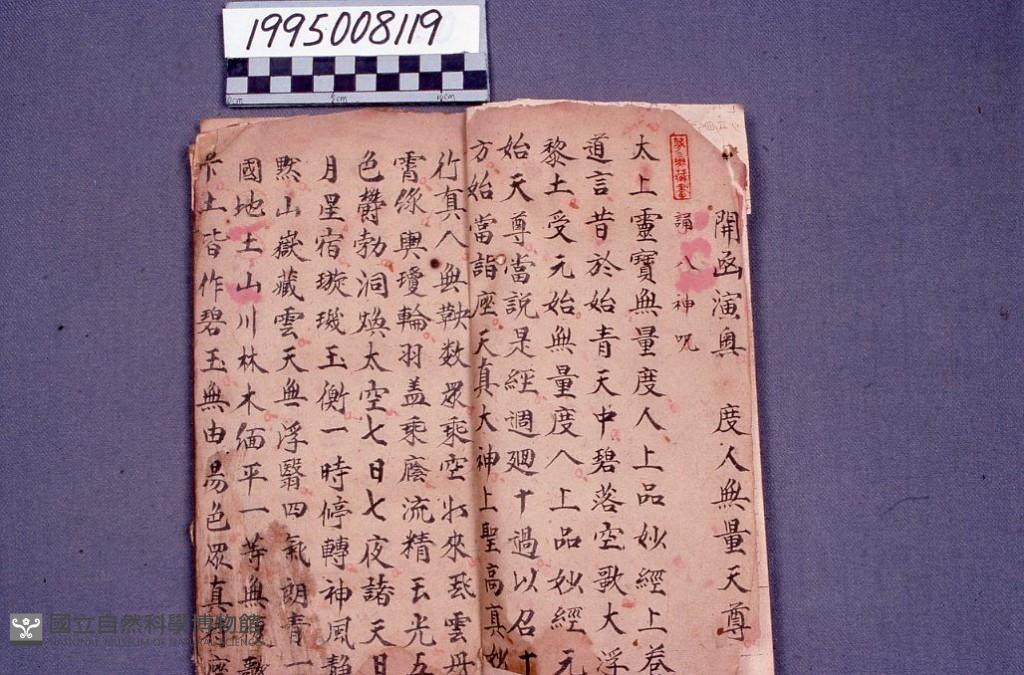 1995008119
0cm 5cm 10cm
開函演奥 度人無量天尊
誦八神呪
太上靈寶無量度人上品妙經上卷
道言昔於始青天中碧落空歌大浮
黎土受元始無量度人上品妙經元
始天尊當說是經週廻十過以召十
方始當詣座天真大神上聖高真妙
行真人無鞅数眾乘空而來飛雲丹
霄綠輿瓊輪羽盖乘廕流精玉光五
色欝勃洞煥太空七日七夜諸天日
月星宿璇璣玉衡一時停轉神風静
黙山嶽藏雲天無浮翳四氣朗青一
國地土山川林木緬平一等無復
土皆作碧玉無由昜色眾真侍座
國立自然科學博物館